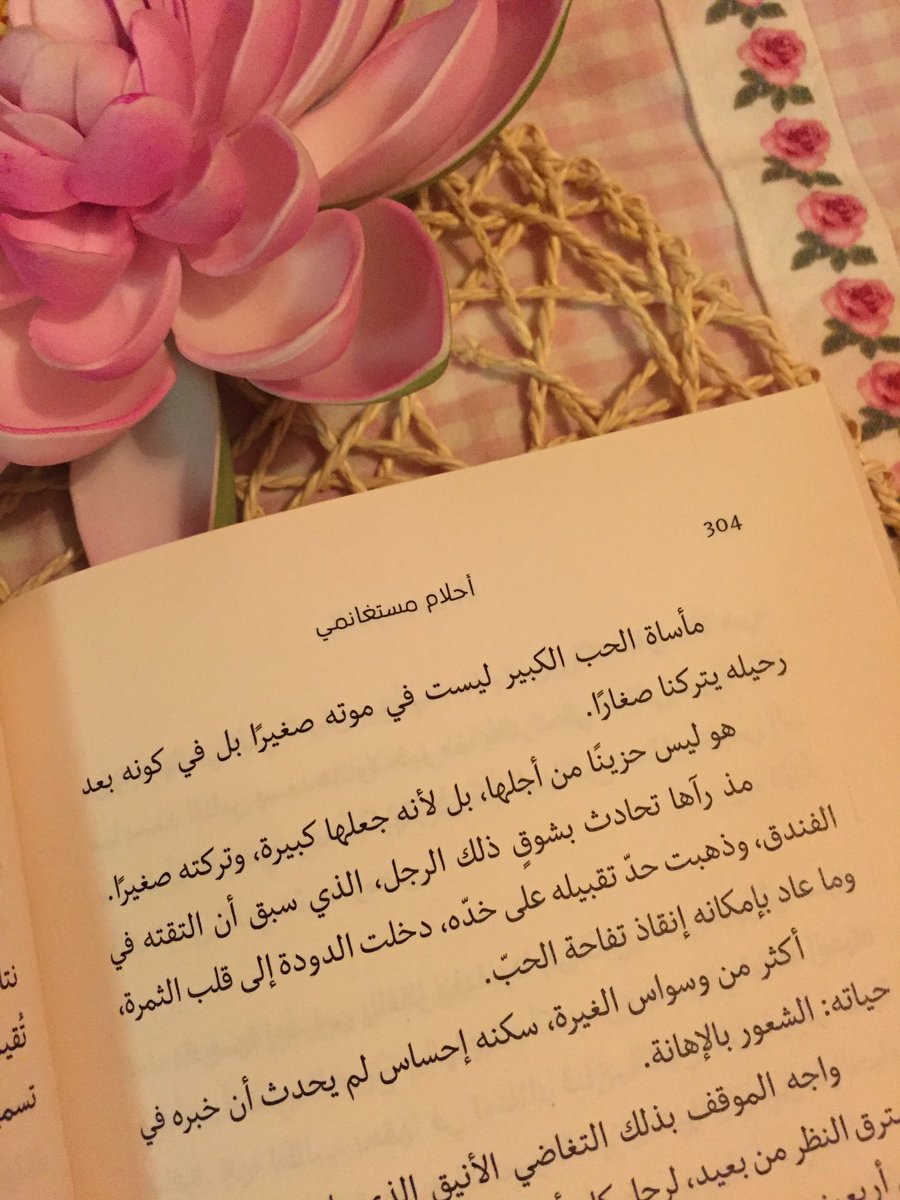 304
أحلام مستغانمي
مأساة الحب الكبير ليست في موته صغيرًا بل في كونه بعد
رحيله يتركنا صغارًا.
هو ليس حزينًا من أجلها، بل لأنه جعلها كبيرة، وتركته صغيرًا.
مذ رآها تحادث بشوقٍ ذلك الرجل، الذي سبق أن التقته في
الفندق، وذهبت حدّ تقبيله على خدّه، دخلت الدودة إلى قلب الثمرة،
وما عاد بإمكانه إنقاذ تفاحة الحبّ.
أكثر من وسواس الغيرة، سكنه إحساس لم يحدث أن خبره في
حياته: الشعور بالإهانة.
واجه الموقف بذلك التغاضي الأنيق
النظر من بعيد، لرجل